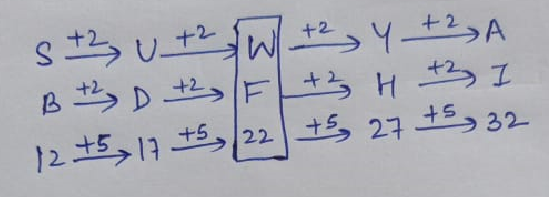 S +2→ U +2→ W +2→ Y +2→ A
B +2→ D +2→ F +2→ H +2→ I
12 +5→ 17 +5→ 22 +5→ 27 +5→ 32